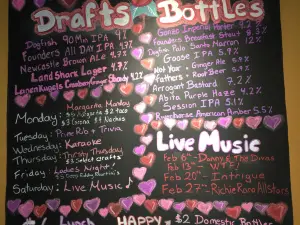 Drafts
Bottles
Dogfish 90 Min IPA 9%
Founders All Day IPA 4.7%
Newcastle Brown Ale 4.7%
LandShark Lager 4.7%
4.2%
Imperial
Founders Breakfast Stout 8.3%
Palo Santo Marron 12%
Goose IPA 5.9%
Not Your Ginger Ale
Fathers Root Beer 5.9%
Arrogant Bastard 7.2%
Abita Purple Haze 4.2%
Session IPA 5.1%
American Amber 5.5%
Monday: Margarita Monday
$3 Corona
Tuesday: Prime Rib & Trivia
Wednesday: Karaoke
Thursday: Thirsty Thursday
select drafts
Friday: Ladies Night!
Saturday: Live Music
Live Music
Feb 6th - Danny & The Divas
Feb 13th - WTF!
Feb 20th - Intrigue
Feb 27th - Richie Rona Allstars
Lunch
HAPPY
$2 Domestic Bottles